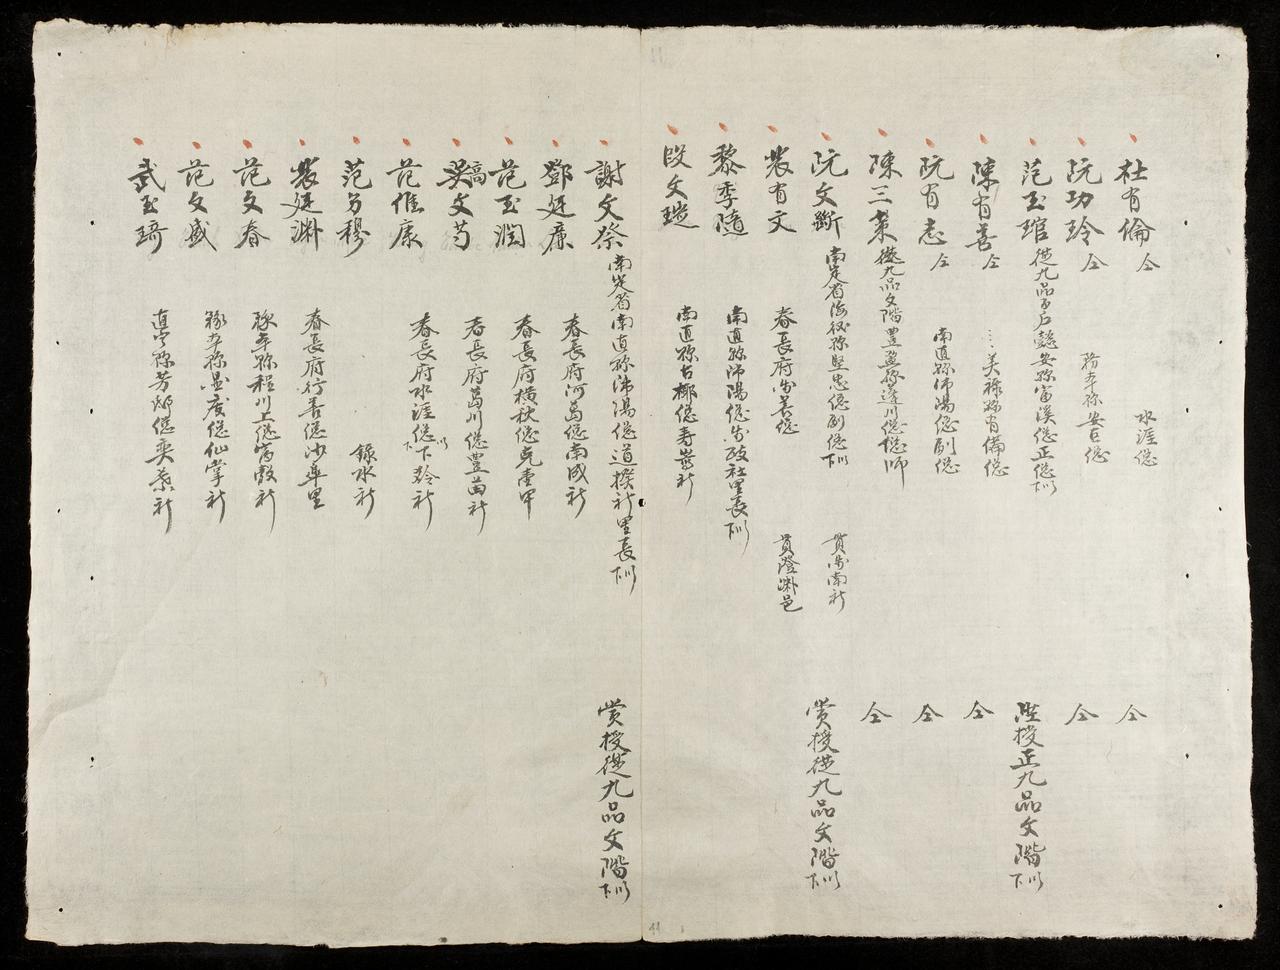 杜有倫 仝 水涯總 仝
阮功玲 仝 務本縣安巨總 仝
范玉琯 從九品百户懿安縣富溪總正總以下 陞授正九品文階以下
陳有善 仝 美祿縣有備總 仝
阮有志 仝 南直縣沛陽總副總 仝
陳三 從九品文階豊盈縣蓬川總總師 仝
阮文斷 南定省海後縣堅忠總副總以下 貫 南社 賞授從九品文階以下
裴有文 春長府 善總 貫澄淵邑
黎季隨 南直縣沛陽總 社里長以下
段文瑞 南直縣古椰總壽 社
謝文祭 南定省南直縣沛陽總道揆社里長以下 賞授從九品文階以下
鄧廷廉 春長府河葛總南成社
范玉潤 春長府橫秋總克 甲
高文芍 春長府葛川總豊苗社
范惟康 春長府水涯總下 社以下
范 穆 錄水社
裴廷淵 春長府行善總沙阜里
范文春 務本縣程川上總富 社
范文盛 務本縣顯慶總仙掌社
武玉琦 直寧縣芳 總奕 社